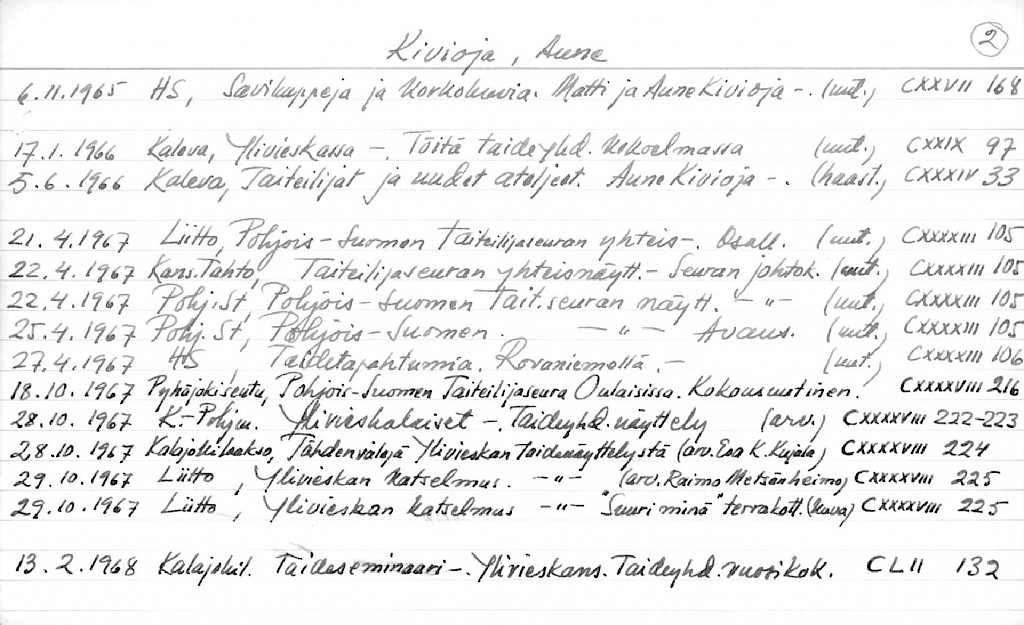 2
Kivioja, Aune
6.11.1965 HS, Savikuppeja ja korkokuvia. Matti ja Aune Kivioja -. (uut.) CXXVII 168
17.1.1966 Kaleva, Ylivieskassa -. Töitä taideyhd. kokoelmassa (uut.) CXXIX 97
5.6.1966 Kaleva, Taiteilijat ja uudet ateljeet. Aune Kivioja -. (haast.) CXXXIV 33
21.4.1967 Liitto, Pohjois-Suomen Taiteilijaseuran yhteis-. Osall. (uut.) CXXXXIII 105
22.4.1967 Kans.Tahto, Taiteilijaseuran yhteisnäytt. - Seuran johtok. (uut.) CXXXXIII 105
22.4.1967 Pohj.St, Pohjois-Suomen Tait.seuran näytt. -"- (uut.) CXXXXIII 105
25.4.1967 Pohj.St, Pohjois-Suomen. -"- Avaus. (uut.) CXXXXIII 105
27.4.1967 HS, Taidetapahtumia Rovaniemellä. - (uut.) CXXXXIII 106
18.10.1967 Pyhäjokiseutu, Pohjois-Suomen Taiteilijaseura Oulaisissa. Kokousuutinen. CXXXXVIII 216
28.10.1967 K.-Pohjm. Ylivieskalaiset -. Taideyhd. näyttely (arv.) CXXXXVIII 222-223
28.10.1967 Kalajokilaakso, Tähdenvälejä Ylivieskan taidenäyttelystä (arv. Eea K. Kujala) CXXXXVIII 224
29.10.1967 Liitto, Ylivieskan katselmus. -"- (arv. Raimo Metsänheimo) CXXXXVIII 225
29.10.1967 Liitto, Ylivieskan katselmus -"- "Suuri minä" terrakott. (kuva) CXXXXVIII 225
13.2.1968 Kalajokil. Taideseminaari -. Ylivieskans. Taideyhd. vuosikok. CLII 132